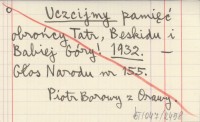 Uczcijmy pamięć
obrońcy Tatr, Beskidu i
Babiej Góry! 1932. —
Głos Narodu nr 155.
Piotr Borowy z Orawy.